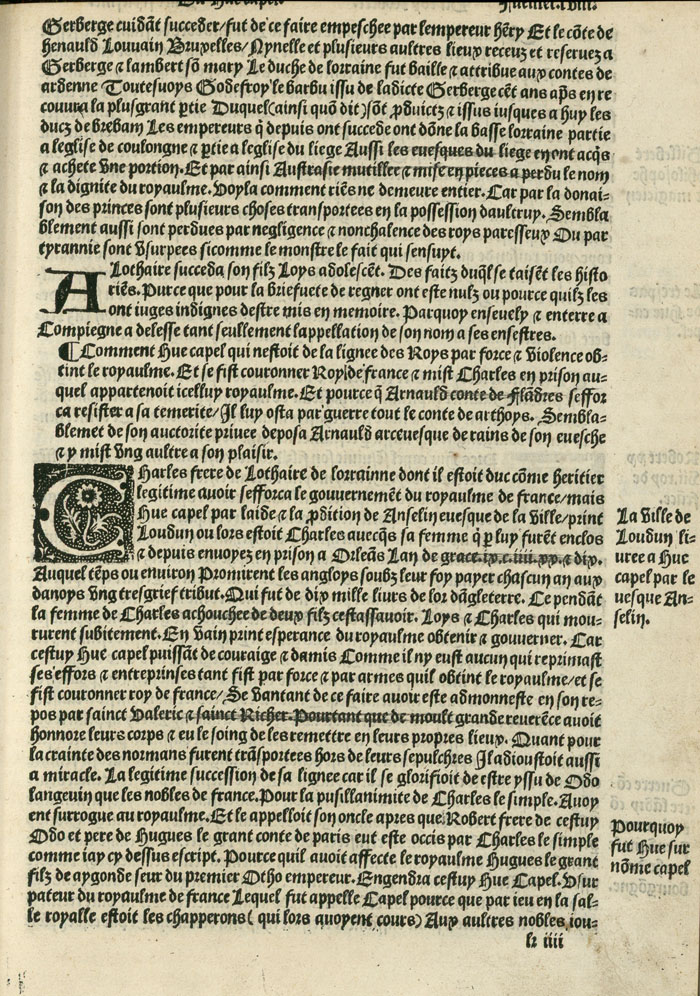 Gerberge cuidāt succeder/fut de ce faire empeschee par lempereur hēry Et le cōte de
henauld Louvain Bruxelles/Nynelle et plusieurs aultres lieux receuz et reservez a
Gerberge ⁊ lambert sō mary Le duche de lorraine fut baille ⁊ attribue aux contes de
ardenne Toutesuoys Godefroy le barbu issu de ladicte Gerberge cēt ans aṕs en re
couura la plusgrant ꝑtie Duquel(ainsi quō dit)sōt ꝓduictz ⁊ issus iusques a huy les
ducz de breban Les empereurs q̄ depuis ont succede ont dōne la basse lorraine partie
a leglise de coulongne ⁊ ꝑtie a leglise du liege Aussi les euesques du liege en ont acq̄s
⁊ achete vne portion. Et par ainsi Austrasie mutillee ⁊ mise en pieces a perdu le nom
⁊ la dignite du royaulme. Voyla comment riēs ne demeure entier. Car par la donai-
son des princes sont plusieurs choses transportees en la possession daultruy. Sembla
blement aussi sont perdues par negligence ⁊ nonchalence des roys paresseux Ou par
tyrannie sont vsurpees sicomme le monstre le fait qui sensuyt.
A Lothaire succeda son filz Loys adolescēt. Des faitz duq̄l se taisēt les histo
riēs. Purce que pour la briefuete de regner ont este nulz ou pource quilz les
ont iuges indignes destre mis en memoire. Parquoy enseuely ⁊ enterre a
Compiegne a delesse tant seullement lappellation de son nom a ses ensestres.
¶Comment Hue capel qui nestoit de la lignee des Roys par force ⁊ violence ob-
tint le royaulme. Et se fist couronner Roy de france ⁊ mist Charles en prison au-
quel appartenoit icelluy royaulme. Et pource q̄ Arnauld conte de Flādres seffor
ca resister a sa temerite/Il luy osta par guerre tout le conte de arthoys. Sembla-
blemēt de son auctorite priuee deposa Arnauld arceuesque de rains de son euesche
⁊ y mist vng aultre a son plaisir.
Charles frere de Lothaire de lorrainne dont il estoit duc cōme heritier
legitime auoir sefforca le gouvernemēt du royaulme de france/mais
Hue capel par laide ⁊ la ꝓdition de Anselin euesque de la ville/print
Loudun ou lors estoit Charles auecq̄s sa femme q̄ ꝑ luy furēt enclos
⁊ depuis envoyez en prison a Orleās Lan de grace.ix.c.iiii.xx.⁊ dix.
Auquel tēps ou environ Promirent les angloys soubz leur foy payer chascun an aux
danoys vng tresgrief tribut. Qui fut de dix mille liurs de lor dāgleterre. Ce pendāt
la femme de Charles achouchee de deux filz cestassauoir. Loys ⁊ Charles qui mou-
rurent subitement. En vain print esperance du royaulme obtenir ⁊ gouverner. Car
cestuy Hue capel puissāt de couraige ⁊ damis Comme il ny eust aucun qui reprimast
ses effors ⁊ entreprinses tant fist par force ⁊ par armes quil obtint le royaulme/et se
fist couronner roy de france/ Se vantant de ce faire auoir este admonneste en son re-
pos par sainct Valeric ⁊ sainct Richer. Pourtant que de moult grande reuerēce auoit
honnore leurs corps ⁊ eu le soing de les remettre en leurs propres lieux. Quant pour
la crainte des normans furent trāsportees hors de leurs sepulchres Il adioustoit aussi
a miracle. La legitime succession de sa lignee car il se glorifioit de estre yssu de Odo
langeuin que les nobles de france. Pour la pusillanimite de Charles le simple. Auoy
ent surrogue au royaulme. Et le appelloit son oncle apres que Robert frere de cestuy
Odo et pere de Hugues le grant conte de paris eut este occis par Charles le simple
comme iay cy dessus escript. Pource quil auoit affecte le royaulme Hugues le grant
filz de aygonde seur du premier Otho empereur. Engendra cestuy Hue Capel. Vsur
pateur du royaulme de france Lequel fut appelle Capel pource que par ieu en la sal-
le royalle estoit les chapperons( qui lors auoyent cours) Aux aultres nobles iou-
lr iiii
La ville de
Loudun li-
uree a Hue
capel par le
uesque An-
selin.
Pourquoy
fut Hue sur
nōme capel